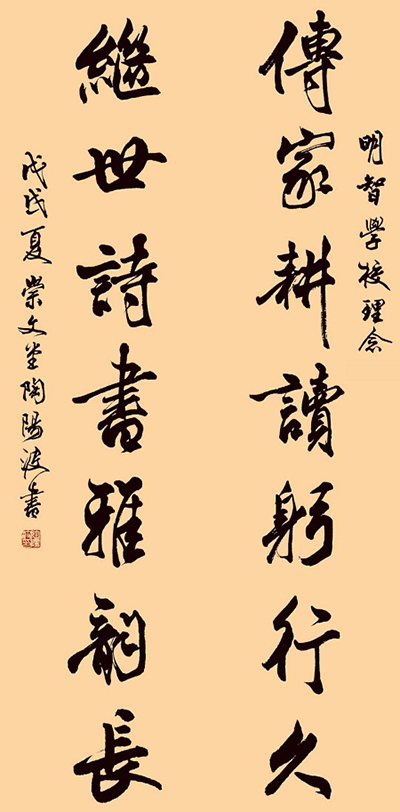 明智學校理念
傳家耕讀躬行久
繼世詩書雅韵長
戊戌夏崇文堂陶陽波書